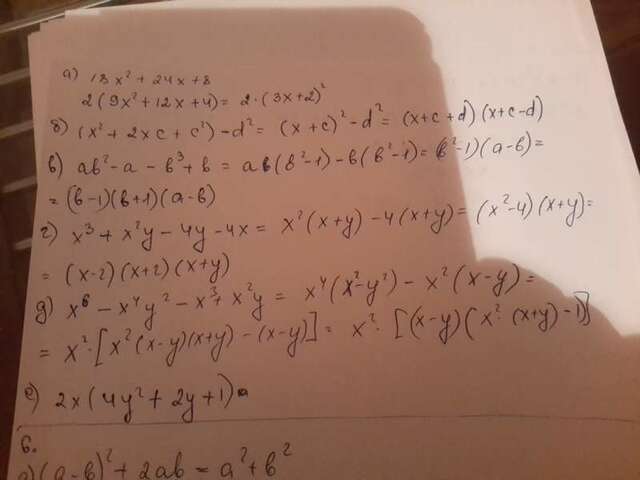 а) 18x² + 24x + 8
2(9x² + 12x + 4) = 2·(3x+2)²
б) (x² + 2xc + c²) - d² = (x+c)² - d² = (x+c+d)(x+c-d)
в) ab² - a - b³ + b = ab(b²-1) - b(b²-1) = b²-1)(a-b) =
= (b-1)(b+1)(a-b)
г) x³ + x²y - 4y - 4x = x²(x+y) - 4(x+y) = (x²-4)(x+y) =
= (x-2)(x+2)(x+y)
д) x⁶ - x⁴y² - x³ + x²y = x⁴(x²-y²) - x²(x-y) =
= x²·[x²(x-y)(x+y) - (x-y)] = x²·[(x-y)(x²·(x+y)-1)]
е) 2x(4y² + 2y + 1)
6.
а) (a-b)² + 2ab = a² + b²